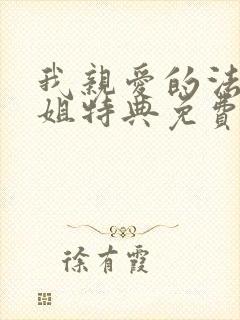 我親愛的法
姐特典免費
徐有霞